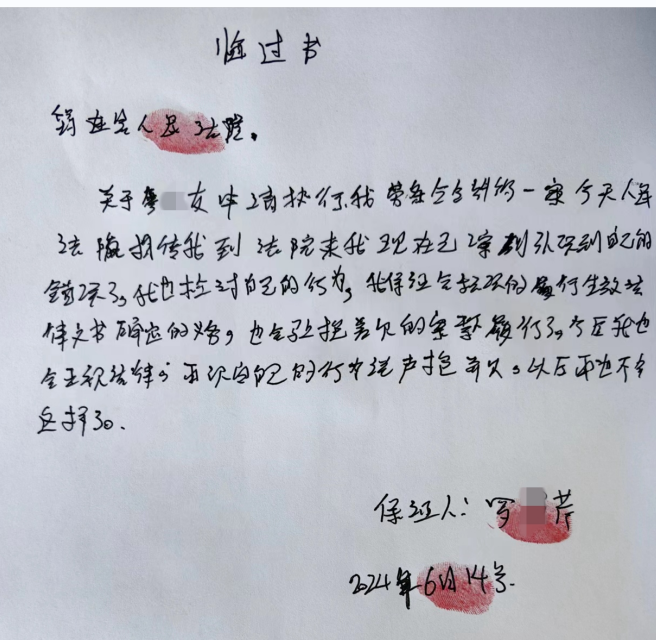 悔过书
人民法院。
关于 女申请执行我劳务合同纠纷一案今天人民
法院拘传我到法院来我现在已深刻认识到自己的
错误了,我也检讨自己的行为,我保证会积极的履行生效法
律文书确定的义务,也会马上把差欠的案款履行了,今后我也
会正视法律,再次向自己的行为说声抱歉,以后再也不会
这样了。
保证人:罗 芹
2024年6月14号.